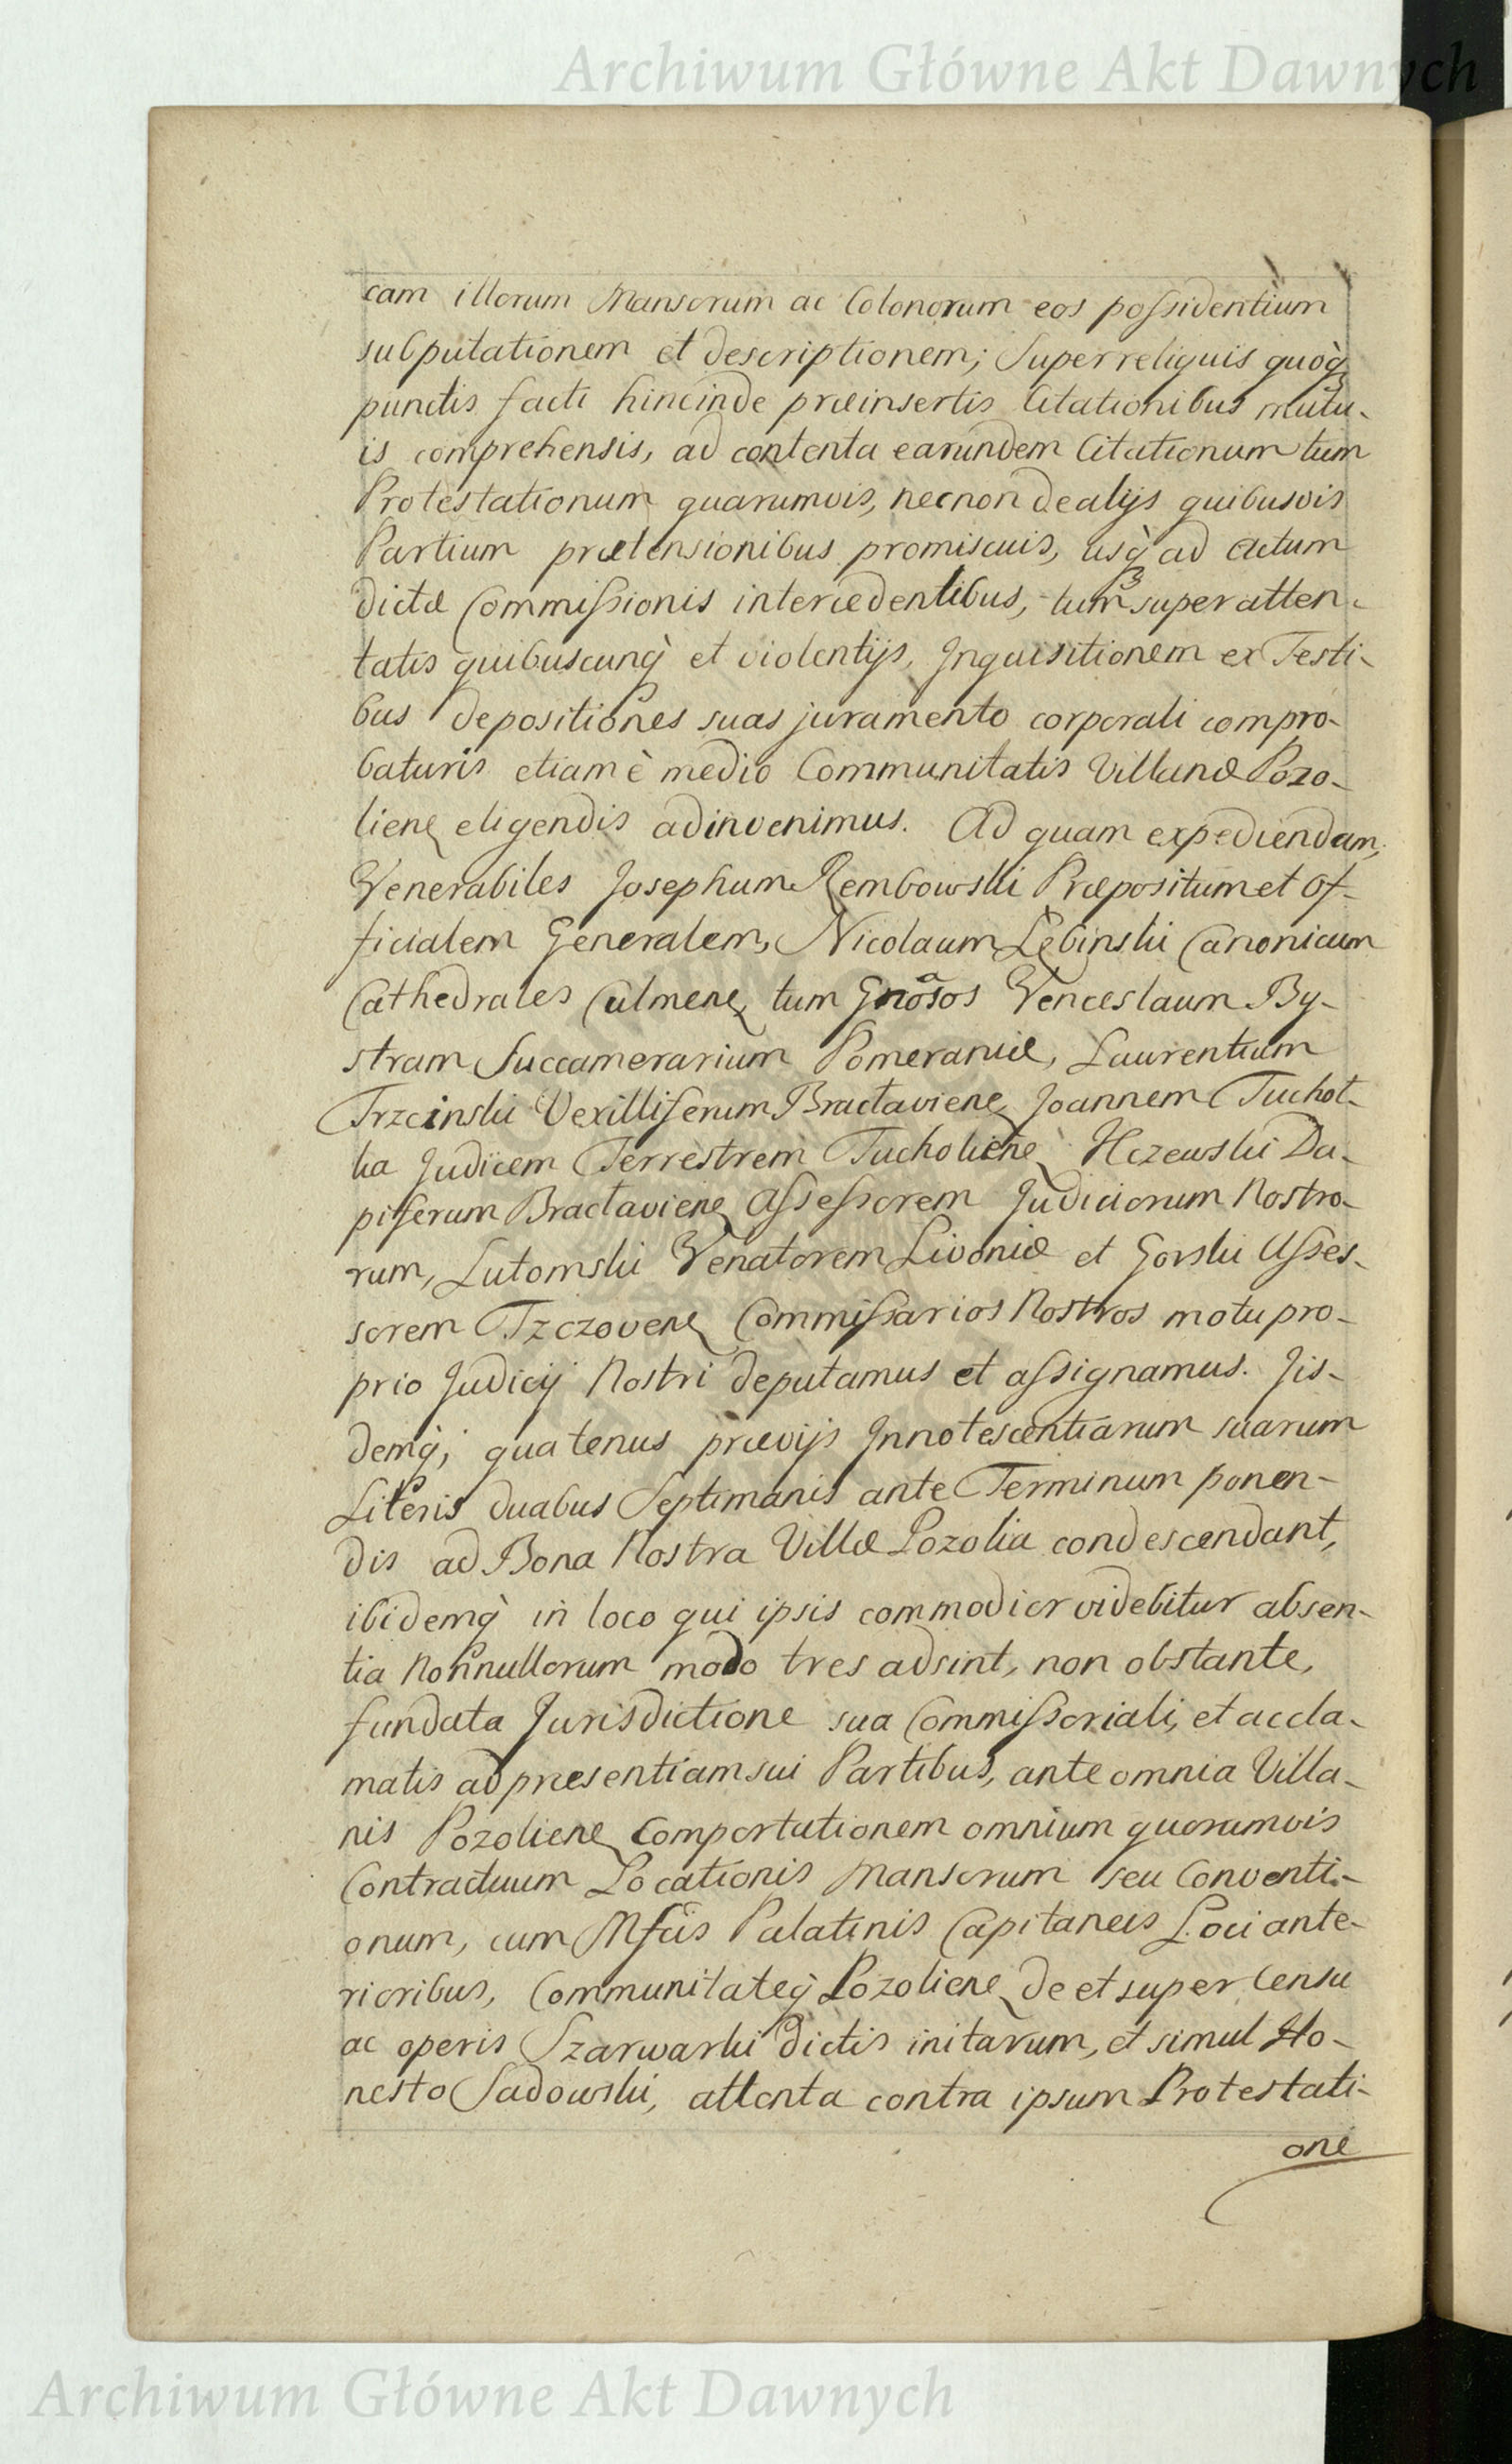 Archiwum Główne Akt Dawnych
cam illorum Mansorum ac Colonorum eos possidentium
subputationem et descriptionem; Super reliquis quoq̀
punctis facti hincinde præinsertis Citationibus mutu-
is comprehensis, ad contenta earundem Citationum tum
Protestationum quarumvis, necnon de alijs quibusvis
Partium prætensionibus promiscuis, usq̀ ad Actum
dictæ Commissionis intercedentibus, tum super atten-
tatis quibuscunq̀ et violentijs, Inquisitionem ex Testi-
bus depositiones suas juramento corporali compro-
baturis etiam è medio Communitatis Villanæ Pozo-
lieņ eligendis adinvenimus. Ad quam expediendam,
Venerabiles Josephum Rembowski Præpositum et Of-
ficialem Generalem, Nicolaum Lębinski Canonicum
Cathedrales Culmeņ tum Gnõsos Venceslaum By-
stram Succamerarium Pomeraniæ, Laurentium
Trzcinski Vexilliferum Bractavieņ Joannem Tuchol-
ka Judicem Terrestrem Tucholieņ Hczewski Da-
piferum Bractavieņ Assessorem Judiciorum Nostro-
rum, Lutomski Venatorem Livoniæ et Gorski Asses-
sorem Tzczoveņ Commissarios Nostros motu pro-
prio Judicij Nostri deputamus et assignamus. Jis-
demq̀; quatenus prævijs Innotescentiarum suarum
Literis duabus Septimanis ante Terminum ponen-
dis ad Bona Nostra Villæ Pozolia condescendant,
ibidemq̀ in loco qui ipsis commodior videbitur absen-
tia Nonnullorum modo tres adsint, non obstante,
fundata Jurisdictione sua Commissoriali, et accla-
matis ad præsentiam sui Partibus, ante omnia Villa-
nis Pozolieņ Comportationem omnium quorumvis
Contractuum Locationis Mansorum seu Conventi-
onum, cum Mfcis Palatinis Capitaneis Loci ante-
rioribus, Communitateq̀ Pozolieņ de et super Censu
ac operis Szarwarki dictis initarum, et simul Ho-
nesto Sadowski, attenta contra ipsum Protestati-
one
Archiwum Główne Akt Dawnych